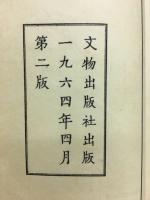 文物出版社出版
一九六四年四月
第二版